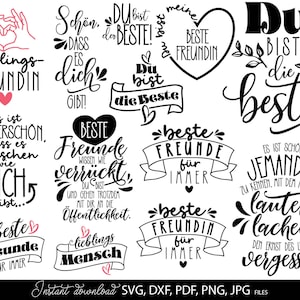 lings-
UNDIN
Schön,
DASS
ES
dich
GIBT!
DU bist
du BESTE!
Du bist meine
BESTE
FREUNDIN
Du
bist
die Beste
Du
BIST
die
best
BESTE
Freunde
WISSEN WIE
verrückt
DU BIST
UND GEHEN TROTZDEM
MIT DIR AN DIE
ÖFFENTLICHKEIT.
beste
FREUNDE
für
IMMER
beste
FREUNDIN
für
IMMER
ES IST SCHÖN
JEMAND
ZU KENNEN, MIT DEM
lauter
lachen
DEN ERNST DES L
vergess
ist
SCHÖN,
ss es
schen
wie
CH
ist...
Beste
unde
ÜR IMMER
Lieblings
Mensch
Instant download SVG, DXF, PDF, PNG, JPG FILES